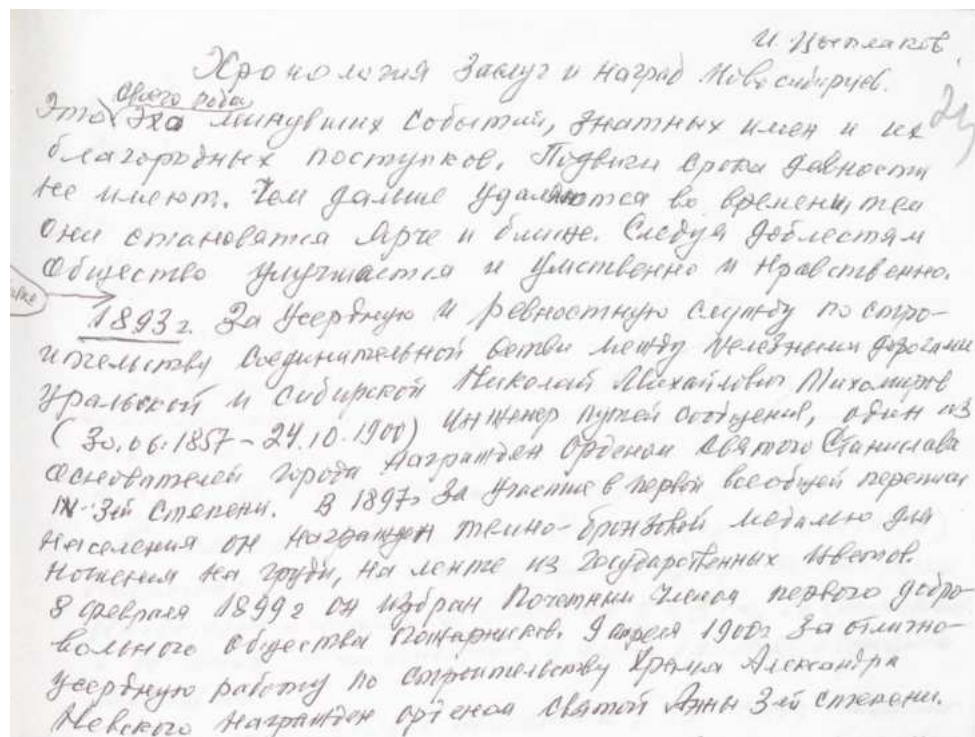 И. Цыплаков.
Хронология заслуг и наград Новосибирцев.
своего рода
Это эхо минувших событий, знатных имен и их
благородных поступков. Подвиги срока давности
не имеют. Чем дальше удаляются во времени тем
они становятся ярче и ближе. Следуя доблестям
общество улучшается и умственно и нравственно.
1893 г. За усердную и ревностную службу по стро-
ительству соединительной ветви между железными дорогами
Уральской и Сибирской Николай Михайлович Тихомиров
(30.06.1857 – 24.10.1900) инженер путей сообщения, один из
основателей города награжден орденом Святого Станислава
3й степени. В 1897г за участие в первой всеобщей переписи
населения он награжден темно-бронзовой медалью для
ношения на груди, на ленте из государственных цветов.
8 февраля 1899 г он избран почетным членом первого добро-
вольного общества пожарников. 9 апреля 1900г за отлично-
усердную работу по строительству храма Александра
Невского награжден орденом Святой Анны 3-й степени.